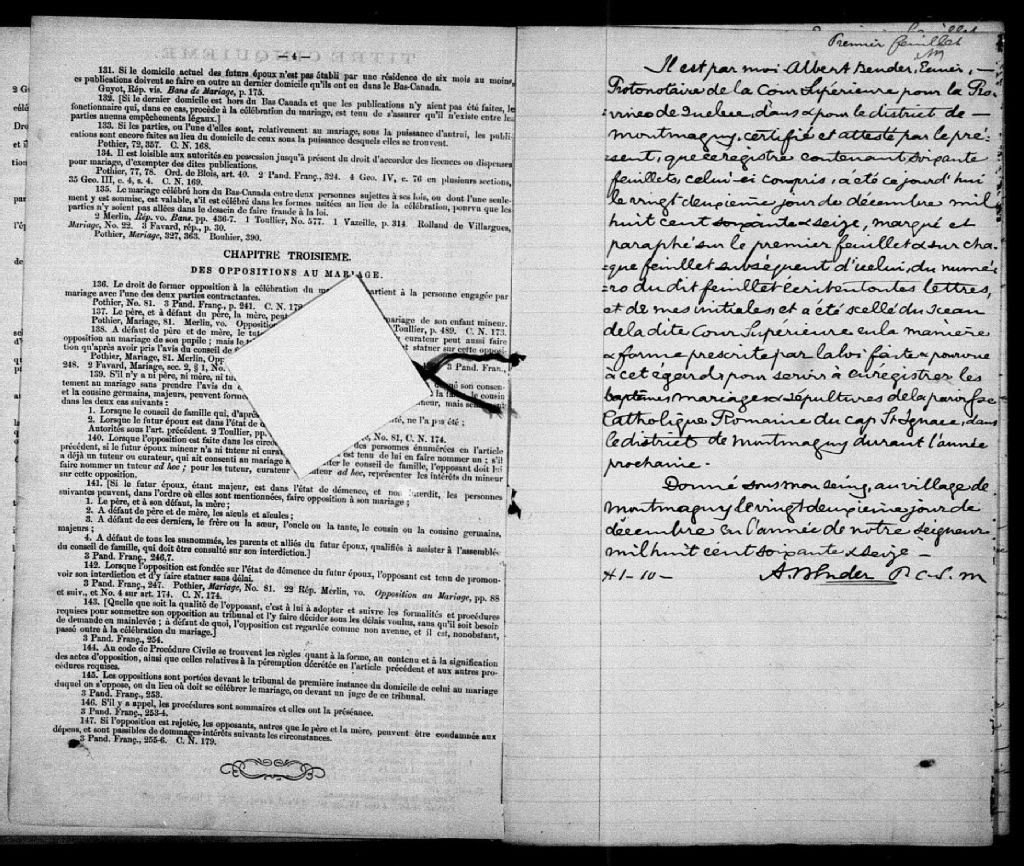 — 4 —
131. Si le domicile actuel des futurs époux n'est pas établi par une résidence de six mois au moins,
es publications doivent se faire en outre au dernier domicile qu'ils ont eu dans le Bas-Canada.
Guyot, Rép. vis. Bans de Mariage, p. 175.
132. [Si le dernier domicile est hors du Bas Canada et que les publications n'y aient pas été faites, le
fonctionnaire qui, dans ce cas, procède à la célébration du mariage, est tenu de s'assurer qu'il n'existe entre les
parties aucuns empêchements légaux.]
133. Si les parties, ou l'une d'elles sont, relativement au mariage, sous la puissance d'autrui, les publi-
cations sont encore faites au lieu du domicile de ceux sous la puissance desquels elles se trouvent.
Pothier, 72, 357. C. N. 168.
134. Il est loisible aux autorités en possession jusqu'à présent du droit d'accorder des licences ou dispenses
pour mariage, d'exempter des dites publications.
Pothier, 77, 78. Ord. de Blois, art. 40. 2 Pand. Franç., 324. 4 Geo. IV, c. 76 en plusieurs sections,
35 Geo. III, c. 4, s. 4. C. N. 169.
135. Le mariage célébré hors du Bas-Canada entre deux personnes sujettes à ses lois, ou dont l'une seule-
ment y est soumise, est valable, s'il est célébré dans les formes usitées au lieu de la célébration, pourvu que les
parties n'y soient pas allées dans le dessein de faire fraude à la loi.
2 Merlin, Rép. vo. Bans. pp. 436-7. 1 Toullier, No. 577. 1 Vazeille, p. 314. Rolland de Villargues,
Mariage, No. 22. 3 Favard, rép., p. 30.
Pothier, Mariage, 327, 363. Bouhier, 390.
CHAPITRE TROISIEME.
DES OPPOSITIONS AU MARIAGE.
136. Le droit de former opposition à la célébration du partient à la personne engagée par
mariage avec l'une des deux parties contractantes.
Pothier, No. 81. 3 Pand. Franç., p. 241. C. N.
137. Le père, et à défaut du père, la mère, peu mariage de son enfant mineur.
Pothier, Mariage, 81. Merlin, vo. Oppositio Toullier, p. 489. C. N. 173.
138. A défaut de père et de mère, le tut curateur peut aussi faire
opposition au mariage de son pupille; mais le t et statuer sur cette opposi-
tion qu'après avoir pris l'avis du conseil de
Pothier, Mariage, 81. Merlin, Opp 3 Pand. Fran.,
248. 2 Favard, Mariage, sec. 2, § 1, No.
139. S'il n'y a ni père, ni mère, ni tu son consen-
tement au mariage sans prendre l'avis du le cousin
et la cousine germains, majeurs, peuvent forme
dans les deux cas suivants :
1. Lorsque le conseil de famille qui, d'aprè ne l'a pas été ;
2. Lorsque le futur époux est dans l'état de d
Autorités sous l'art. précédent. 2 Toullier, pp. No. 81, C. N. 174.
140. Lorsque l'opposition est faite dans les circo personnes énumérées en l'article
précédent, si le futur époux mineur n'a ni tuteur ni curat est tenu de lui en faire nommer un ; s'il
a déjà un tuteur ou curateur, qui ait consenti au mariage le conseil de famille, l'opposant doit lui
faire nommer un tuteur ad hoc ; pour les tuteur, curateur ad hoc, représenter les intérêts du mineur
sur cette opposition.
141. [Si le futur époux, étant majeur, est dans l'état de démence, et non interdit, les personnes
suivantes peuvent, dans l'ordre où elles sont mentionnées, faire opposition à son mariage ;
1. Le père, et à son défaut, la mère ;
2. A défaut de père et de mère, les aïeuls et aïeules ;
3. A défaut de ces derniers, le frère ou la sœur, l'oncle ou la tante, le cousin ou la cousine germains,
majeurs ;
4. A défaut de tous les susnommés, les parents et alliés du futur époux, qualifiés à assister à l'assemblée
du conseil de famille, qui doit être consulté sur son interdiction.]
3 Pand. Franç., 246,7.
142. Lorsque l'opposition est fondée sur l'état de démence du futur époux, l'opposant est tenu de promou-
voir son interdiction et d'y faire statuer sans délai.
3 Pand. Franç., 247. Pothier, Mariage, No. 81. 22 Rép. Merlin, vo. Opposition au Mariage, pp. 88
et suiv., et No. 4 sur art. 174. C. N. 174.
143. [Quelque soit la qualité de l'opposant, c'est à lui à adopter et suivre les formalités et procédures
requises pour soumettre son opposition au tribunal et l'y faire décider sous les délais voulus, sans qu'il soit besoin
de demande en mainlevée ; à défaut de quoi, l'opposition est regardée comme non avenue, et il est, nonobstant,
passé outre à la célébration du mariage.]
3 Pand. Franç., 254.
144. Au code de Procédure Civile se trouvent les règles quant à la forme, au contenu et à la signification
des actes d'opposition, ainsi que celles relatives à la péremption décrétée en l'article précédent et aux autres pro-
cédures requises.
145. Les oppositions sont portées devant le tribunal de première instance du domicile de celui au mariage
duquel on s'oppose, ou du lieu où doit se célébrer le mariage, ou devant un juge de ce tribunal.
3 Pand. Franç., 253.
146. S'il y a appel, les procédures sont sommaires et elles ont la préséance.
3 Pand. Franç., 253-4.
147. Si l'opposition est rejetée, les opposants, autres que le père et la mère, peuvent être condamnés aux
dépens, et sont passibles de dommages-intérêts suivants les circonstances.
3 Pand. Franç., 255-6. C. N. 179.
Premier feuillet
Il est par moi Albert Bender, Ecuier, —
Protonotaire de la Cour Supérieure pour la Pro-
vince de Quebec, dans & pour le district de —
Montmagny, certifié et attesté par le pré-
sent, que ce registre contenant soixante
feuillets, celui-ci compris, a été ce jourd'hui
le vingt deuxième jour de décembre mil
huit cent soixante & seize, marqué et
paraphé sur le premier feuillet & sur cha-
que feuillet subséquent d'icelui, du numé-
ro du dit feuillet écrit en toutes lettres,
et de mes initiales, et a été scellé du sceau
de la dite Cour Supérieure en la manière
& forme prescrite par la loi faite & pourvue
à cet égard; pour servir à enregistrer les
baptêmes mariages & sépultures de la paroisse
Catholique Romaine du cap St Ignace, dans
le district de Montmagny durant l'année
prochaine.
Donné sous mon seing, au village de
Montmagny le vingt deuxième jour de
décembre en l'année de notre seigneur
mil huit cent soixante & seize —
A Bender P. C. S. M